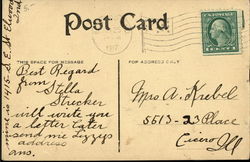 Post Card
1917
THIS SPACE FOR MESSAGE
FOR ADDRESS ONLY
Best Regard
from
Stella
Strecker
will write you
a letter later
send me Lizzys
address
ans.
mine is 1415 S. E. St
Mrs A. Krebel
5513-23 Place
Cicero
Ill